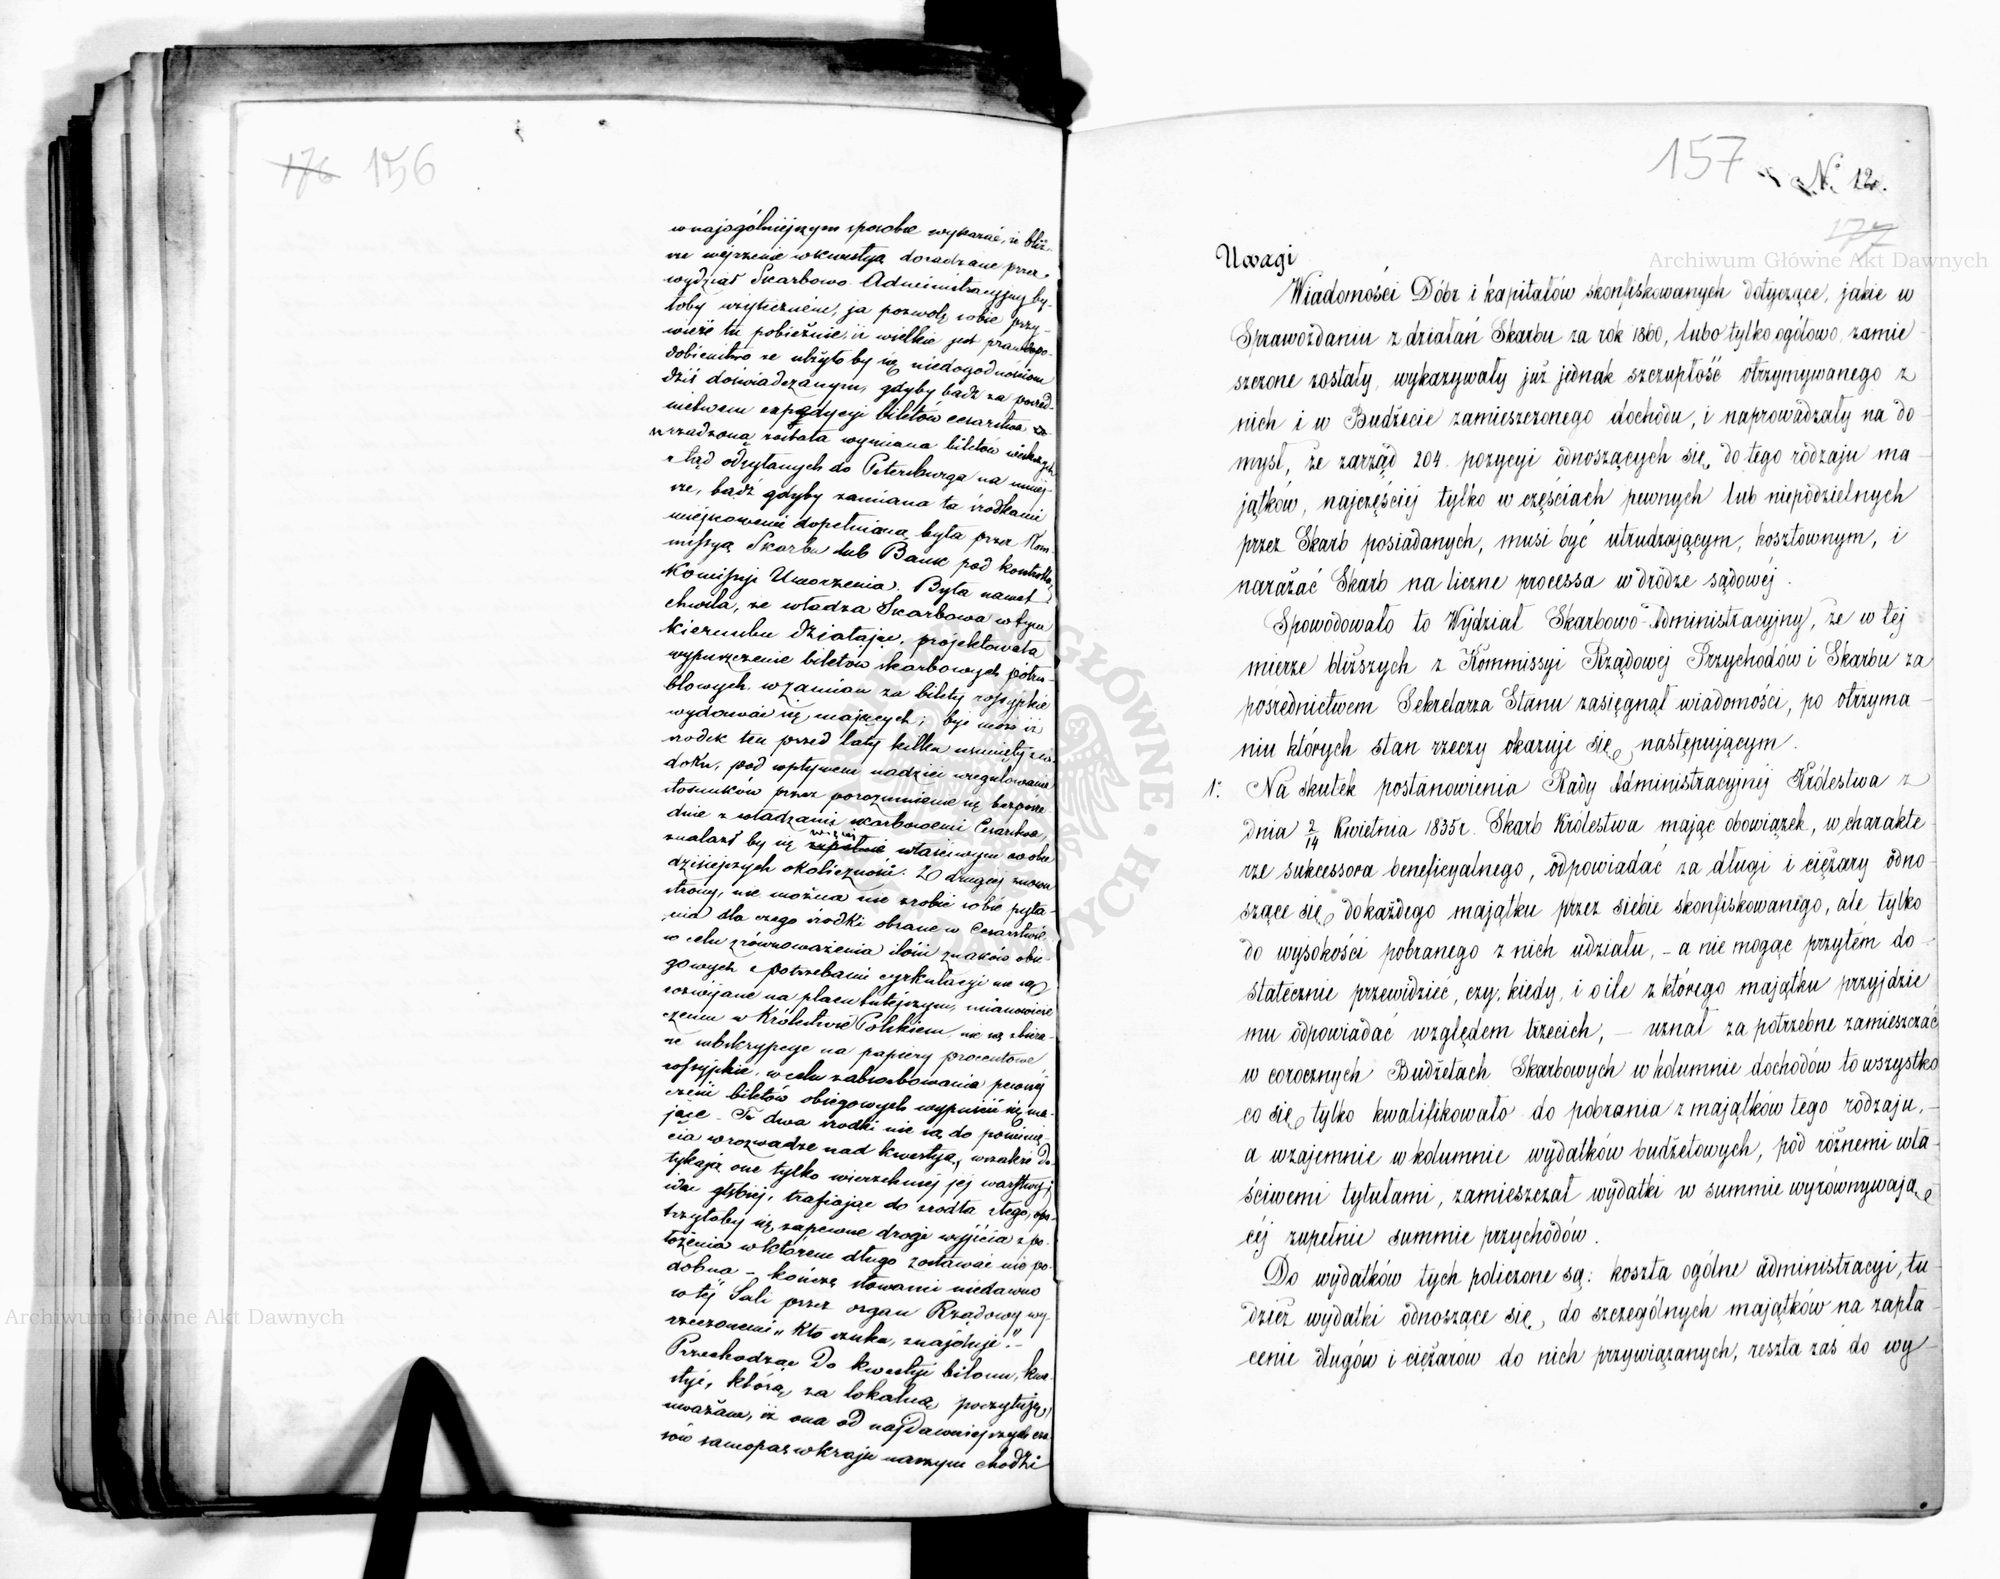 176 156
w najogólniejszym sposobie wykazać, iż bliż-
sze wejrzenie w kwestyą doradzane przez
wydział Skarbowo Administracyjny by-
łoby użyteczném, ja pozwolę sobie przy-
wieść tu pobieżnie, iż wielkie jest prawdopo-
dobieństwo że ulżyło by się niedogodnościom
dziś doświadczanym, gdyby bądź za pośred-
nictwem expedycyi biletów cesarstwa
urządzoną została wymiana biletów większych
ztąd odsyłanych do Petersburga na mniej-
sze, bądź gdyby zamiana ta środkami
miejscowemi dopełnianą była przez Kom-
missyą Skarbu lub Bank pod kontrollą
Komissyi Umorzenia. Była nawet
chwila, że władza Skarbowa w tym
kierunku działając, projektowała
wypuszczenie biletów skarbowych półru-
blowych w zamian za bilety rossyjskie
wydawać się mających; być może iż
środek ten przed laty kilku usunięty z wi-
doku, pod wpływem nadziei uregulowania
stosunków przez porozumienie się bezpośre-
dnie z władzami skarbowemi Cesarstwa,
znalazł by się więcej zupełnie właściwym w obec
dzisiejszych okoliczności. Z drugiej znowu
strony, nie można nie zrobić sobie pyta-
nia dla czego środki obrane w Cesarstwie
w celu zrównoważenia ilości znaków obie-
gowych z potrzebami cyrkulacyi nie są
rozwijane na placu tutejszym, mianowicie
czemu w Królestwie Polskiem nie są zbiera-
ne subskrypcye na papiery procentowe
rossyjskie, w celu zabsorbowania pewnej
części biletów obiegowych wypuścić się ma-
jące. Te dwa środki nie są do pominię-
cia w rozwadze nad kwestyą, wszakże do-
tykają one tylko wierzchniej jej warstwy;
idąc głębiej, trafiając do źródła złego, opa-
trzyłoby się zapewne drogi wyjścia z po-
łożenia w którem długo zostawać nie po-
dobna – kończę słowami niedawno
w tej Sali przez organ Rządowy wy-
rzeczonemi „Kto szuka, znajduje." –
Przechodząc do kwestyi bilonu, kwe-
styi, którą za lokalną poczytuję,
uważam, iż ona od najdawniejszych cza-
sów samopas w kraju naszym chodzi
157 N. 12.
177
Uwagi
Wiadomości Dóbr i kapitałów skonfiskowanych dotyczące, jakie w
Sprawozdaniu z działań Skarbu za rok 1860, lubo tylko ogółowo zamie-
szczone zostały, wykazywały już jednak szczupłość otrzymywanego z
nich i w Budżecie zamieszczonego dochodu, i naprowadzały na do-
mysł, że zarząd 204. pozycyi odnoszących się do tego rodzaju ma-
jątków, najczęściej tylko w częściach pewnych lub niepodzielnych
przez Skarb posiadanych, musi być utrudzającym, kosztownym, i
narażać Skarb na liczne processa w drodze sądowéj.
Spowodowało to Wydział Skarbowo-Administracyjny, że w tej
mierze bliższych z Kommissyi Rządowéj Przychodów i Skarbu za
pośrednictwem Sekretarza Stanu zasięgnął wiadomości, po otrzyma-
niu których stan rzeczy okazuje się następującym.
1. Na skutek postanowienia Rady Administracyjnej Królestwa z
dnia 2/14 Kwietnia 1835 r. Skarb Królestwa mając obowiązek, w charakte-
rze sukcessora beneficyalnego, odpowiadać za długi i ciężary odno-
szące się do każdego majątku przez siebie skonfiskowanego, ale tylko
do wysokości pobranego z nich udziału, – a nie mogąc przytém do-
statecznie przewidzieć, czy, kiedy, i o ile z którego majątku przyjdzie
mu odpowiadać względem trzecich, – uznał za potrzebne zamieszczać
w corocznych Budżetach Skarbowych w kolumnie dochodów to wszystko
co się tylko kwalifikowało do pobrania z majątków tego rodzaju, –
a wzajemnie w kolumnie wydatków budżetowych, pod różnemi wła-
ściwemi tytułami, zamieszczał wydatki w summie wyrównywają-
céj zupełnie summie przychodów.
Do wydatków tych policzone są: koszta ogólne administracyi, tu-
dzież wydatki odnoszące się do szczególnych majątków na zapła-
cenie długów i ciężarów do nich przywiązanych, reszta zaś do wy-
Archiwum Główne Akt Dawnych
Archiwum Główne Akt Dawnych